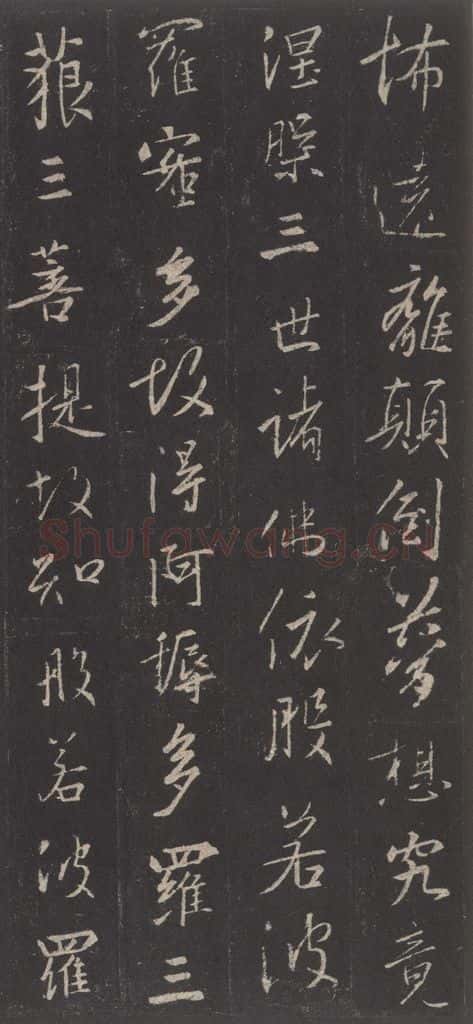 怖遠離顛倒夢想究竟
涅槃三世諸佛依般若波
羅蜜多故得阿耨多羅三
藐三菩提故知般若波羅
Shufawang.cn